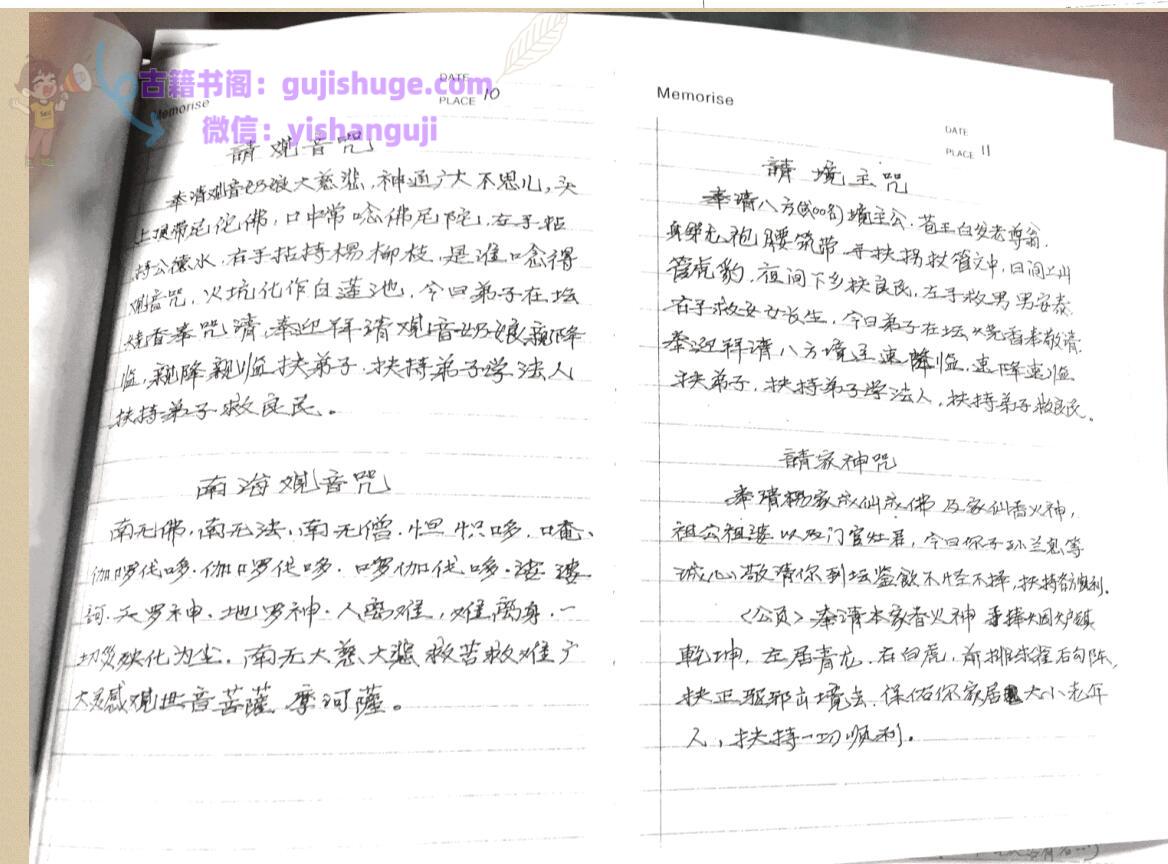 古籍书阁：gujishuge.com
微信：yishanguji
Memorise
DATE
PLACE 10
請观音咒
奉请观音奶娘大慈悲，神通广大不思儿，头
上顶带尼佗佛，口中常唸佛尼陀，左手粘
持公德水，右手拈持楊柳枝，是谁唸得
观音咒，火坑化作白莲池，今日弟子在坛
烧香奉咒清，奉迎拜请观音奶娘亲降
临，親降親临扶弟子，扶持弟子学法人
扶持弟子救良民。
南海观音咒
南无佛，南无法，南无僧，怛怾哆，唵、
伽啰伐哆，伽啰伐哆，啰伽伐哆，婆婆
訶，天罗神，地罗神，人离难，难离身，一
切災殃化为尘，南无大慈大悲救苦救难广
大灵感观世音菩薩，摩河薩。
Memorise
DATE
PLACE 11
請境主咒
奉请八方境主公，苍王白发老尊翁，
身穿龙袍腰带，手扶拐杖管文中，日间上山
管虎豹，夜间下乡扶良民，左手救男男安泰，
右手救女女长生，今日弟子在坛烧香奉敬请，
奉迎拜请八方境主速降临，速降速临
扶弟子，扶持弟子学法人，扶持弟子救良民。
請家神咒
奉请楊家成仙成佛及家仙香火神，
祖公祖婆以及门官灶君，今日你子孙等
诚心敬请你到坛鉴飲不怪不择，扶持顺利。
〈公页〉奉请本家香火神，手捧炉镇
乾坤，左居青龙，右白虎，前排朱雀后勾陈，
扶正驱邪出境去，保佑你家居大小老年
人，扶持一切顺利。